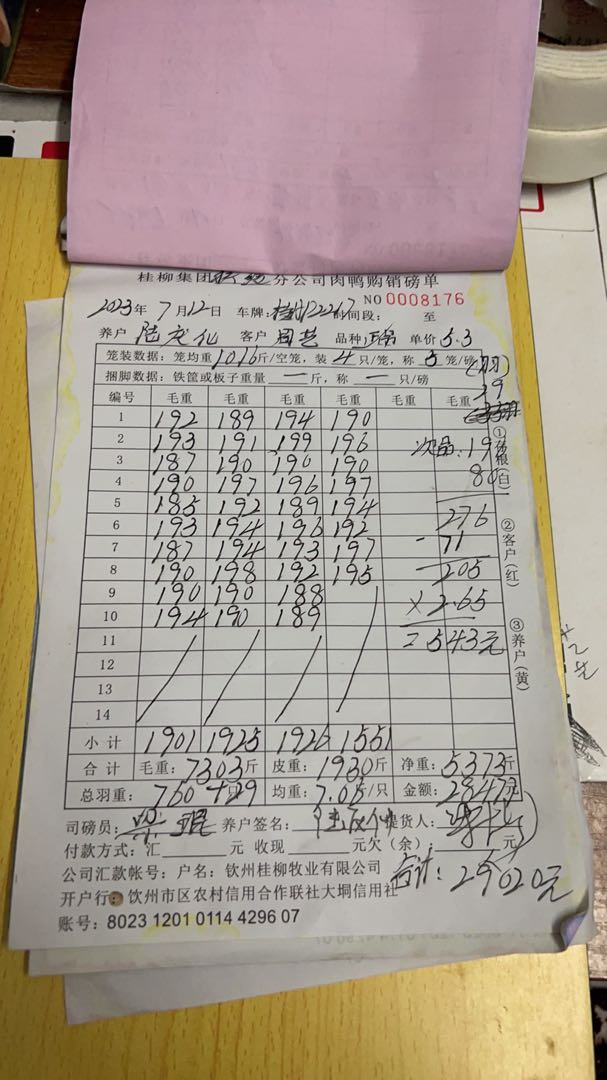 桂柳集团 分公司肉鸭购销磅单
NO 0008176
2023年 7月12日 车牌: 时间段: 至
养户 客户 品种 单价 5.3
笼装数据：笼均重 斤/空笼，装 4 只/笼，称 5 笼/磅
捆脚数据：铁筐或板子重量 — 斤，称 — 只/磅
编号 毛重 毛重 毛重 毛重 毛重 毛重
1 192 189 194 190
2 193 191 199 196
3 187 190 190 190
4 190 197 196 197
5 185 192 189 194
6 193 194 196 192
7 187 194 193 197
8 190 198 192 195
9 190 190 188
10 194 190 189
11
12
13
14
小计 1901 1925 1926 1551
合计 毛重：7303斤 皮重：1930斤 净重：5373斤
总羽重：760+29只 均重：7.05/只 金额： 元
司磅员： 养户签名： 提货人：
付款方式：汇 元 收现 元欠（余） 元
合计：29020元
公司汇款帐号：户名：钦州桂柳牧业有限公司
开户行：钦州市区农村信用合作联社大垌信用社
账号：8023 1201 0114 4296 07
29
次品：
80
276
-71
205
×2.65
=543元
① 存根(白)
② 客户(红)
③ 养户(黄)